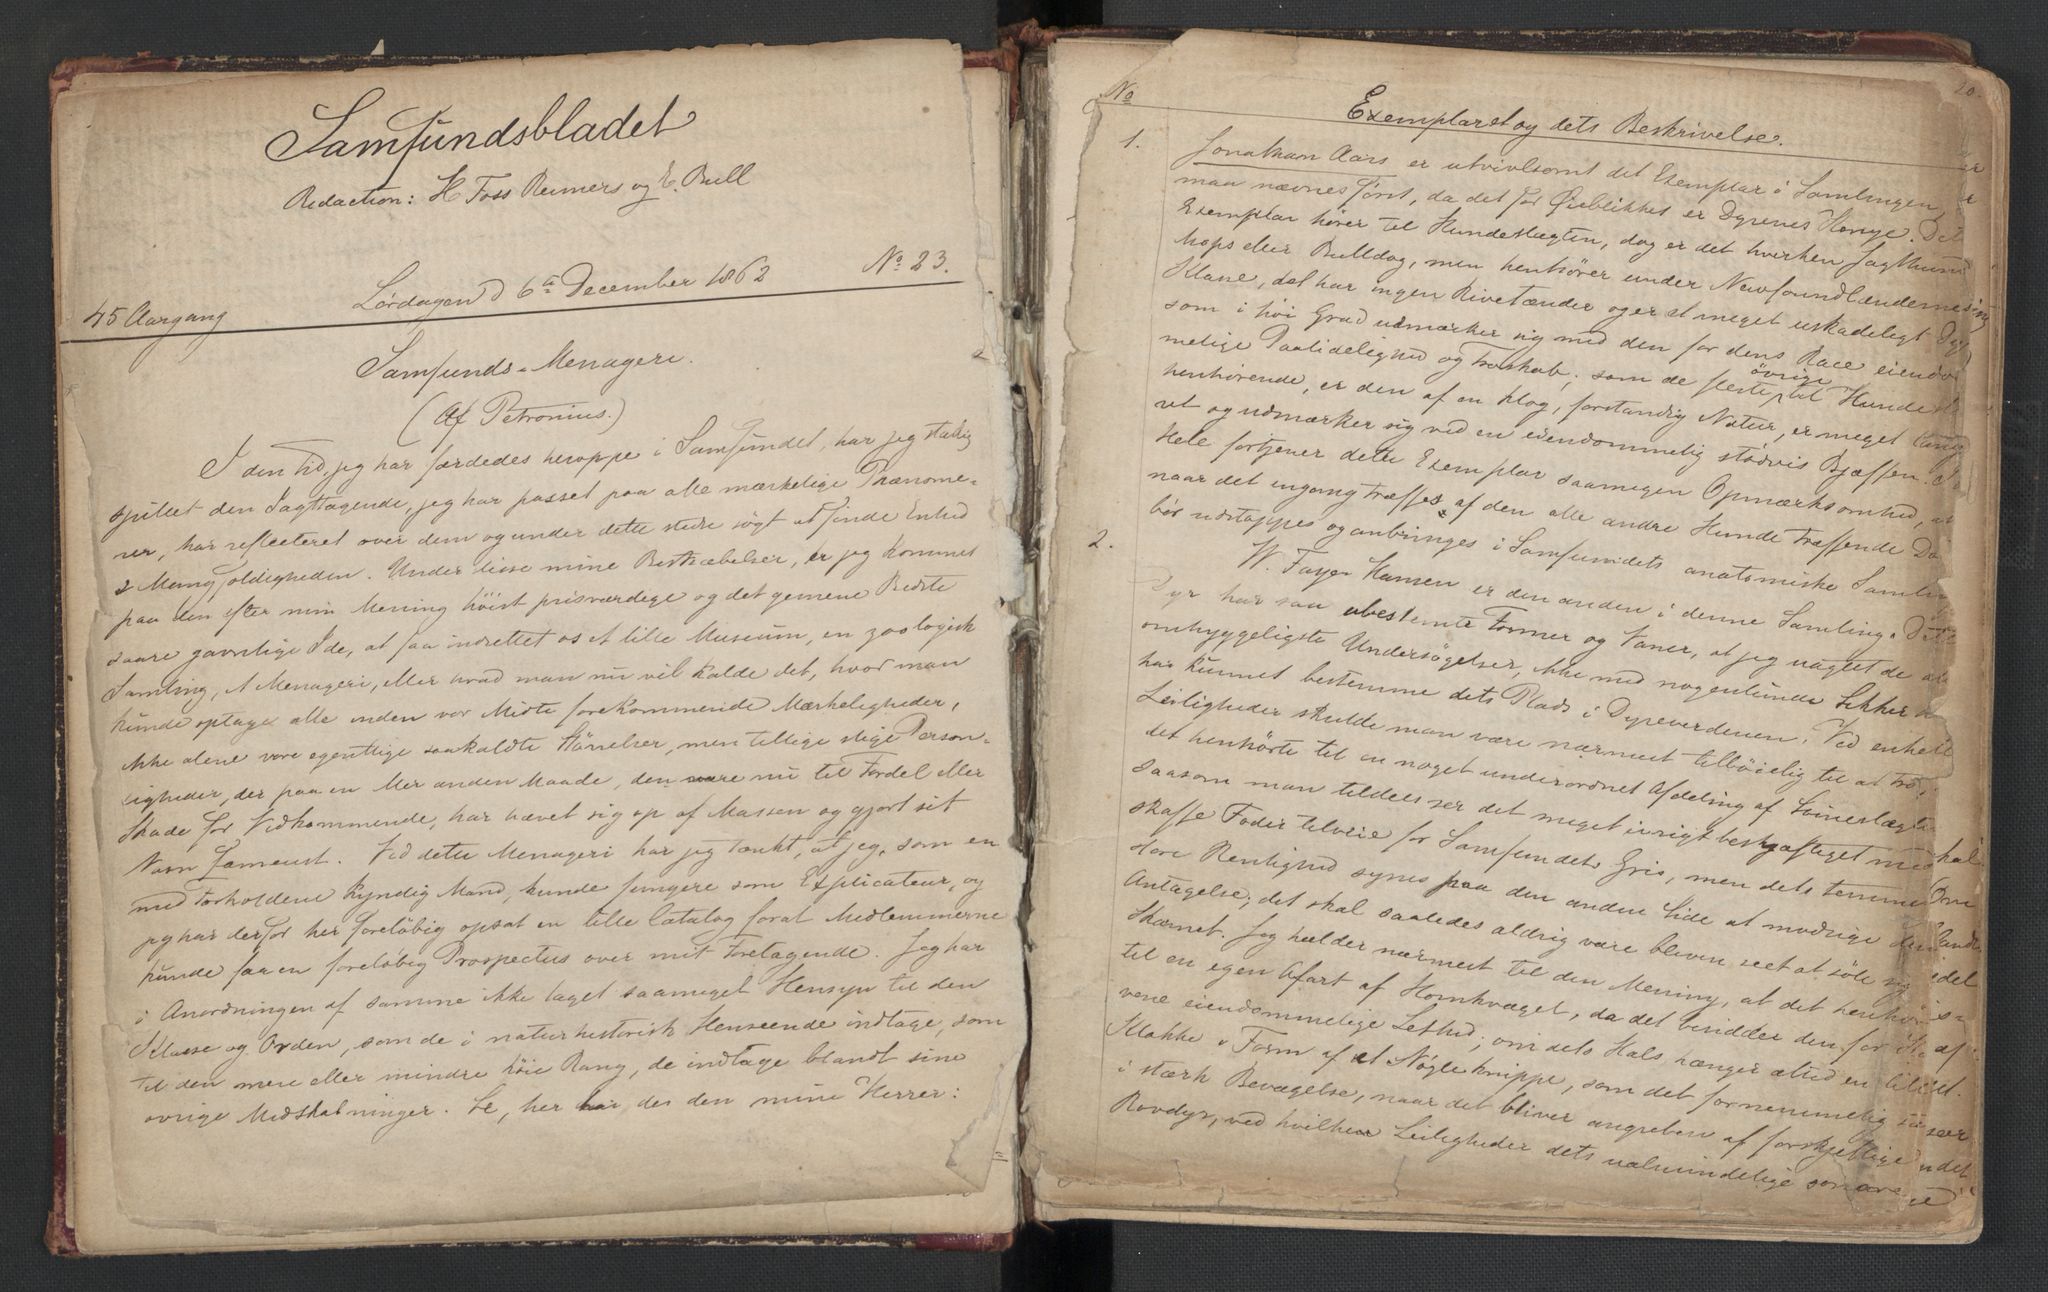 Samfundsbladet
Redaction: H Foss Reimers og E. Bull
45 Aargang Lørdagen d 6te December 1862 No 23.
Samfunds-Menageri.
(Af Petronius.)
I den Tid, jeg har færdedes heroppe i Samfundet, har jeg stadig
spillet den Iagttagende, jeg har passet paa alle mærkelige Phænome-
ner, har reflecteret over dem og under dette stedse søgt at finde Enhed
i Mangfoldigheden. Under disse mine Bestræbelser, er jeg kommet
paa den efter min Mening høist prisværdige og det gemene Bedste
saare gavnlige Ide, at faa indrettet os et lille Museum, en zoologisk
Samling, et Menageri, eller hvad man nu vil kalde det, hvor man
kunde optage alle inden vor Midte forekommende Mærkeligheder,
ikke alene vore egentlige saakaldte Størrelser, men tillige slige Person-
ligheder, der paa en eller anden Maade, den være nu til Fordel eller
Skade for Vedkommende, har hævet sig op af Massen og gjort sit
Navn fameust. Ved dette Menageri har jeg tænkt, at jeg, som en
med Forholdene kyndig Mand, kunde fungere som Explicateur, og
jeg har derfor her foreløbig opsat en lille Catalog forat Medlemmerne
kunde faa en foreløbig Prospectus over mit Foretagende. Jeg har
i Anordningen af samme ikke taget saameget Hensyn til den
Klasse og Orden, som de i naturhistorisk Henseende indtage, som
til den mere eller mindre høie Rang, de indtage blandt sine
øvrige Medskabninger. Se, her har des den mine Herrer:
No Exemplaret og dets Beskrivelse. 20.
1. Jonathan Aars er utvivlsomt det Exemplar i Samlingen,
maa nævnes først, da det for Øieblikket er Dyrenes Konge. Det
Exemplar hører til Hundeslægten, dog er det hverken Jagthund
Mops eller Bulldog, men henhører under Newfoundlændernes
Klasse, det har ingen Rivetænder og er et meget uskadeligt Dyr
som i høi Grad udmærker sig med den for dens Race eiendom
melige Paalidelighed og Troskab; som de fleste øvrige til Hunde
henhørende, er den af en klog, forstandig Natur, er meget
ret og udmærker sig ved en eiendommelig stødvis Bjæffen. I
Hele fortjener dette Exemplar saamegen Opmærksomhed, at
naar det engang træffes af den alle andre Hunde træffende
bør udstoppes og anbringes i Samfundets anatomiske Samling
2. W. Fayer Hansen er den anden i denne Samling. Dette
Dyr har saa ubestemte Former og Vaner, at jeg uagtet de
omhyggeligste Undersøgelser, ikke med nogenlunde Sikker
har kunnet bestemme dets Plads i Dyreverdenen. Ved enkelte
Leiligheder skulde man være nærmest tilbøielig til at tro
det henhørte til en noget underordnet Afdeling af Svineslægten
saasom man tildels ser det meget ivrigt beskjæftiget med
skaffe Foder tilveie for Samfundets Gris, men dets
store Renlighed synes paa den anden Side at modsige den
Antagelse; det skal saaledes aldrig være bleven seet at søle sig
Skarnet. Jeg hælder nærmest til den Mening, at det henhører
til en egen Afart af Hornkvæget, da det besidder den for
vene eiendommelige Lethed; om dets Hals hænger altid en liden
Klokke i Form af et Nøgleknippe, som det fornemmelig
i stærk Bevægelse, naar det bliver angreben af forskjellige
Rovdyr, ved hvilke Leiligheder dets ualmindelige sonore